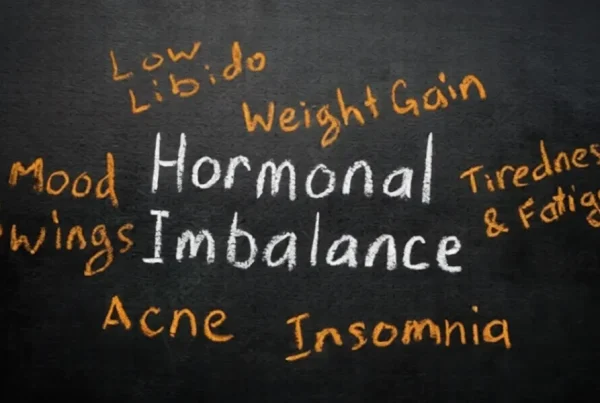 Low
Libido
Weight Gain
Mood
wings
Hormonal
Imbalance
Tirednes
& Fatig
Acne
Insomnia